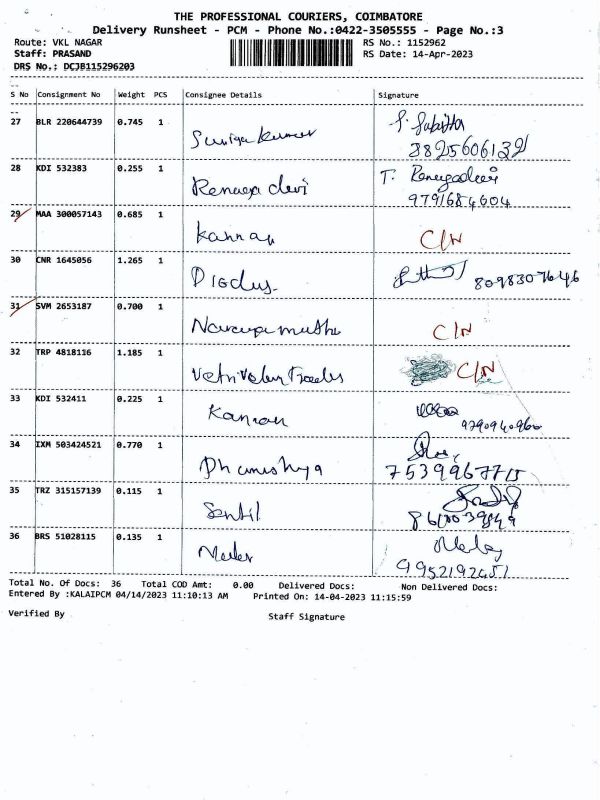 THE PROFESSIONAL COURIERS, COIMBATORE
Delivery Runsheet - PCM - Phone No.:0422-3505555 - Page No.:3
Route: VKL NAGAR RS No.: 1152962
Staff: PRASAND RS Date: 14-Apr-2023
DRS No.: DCJB115296203
S No Consignment No Weight PCS Consignee Details Signature
27 BLR 220644739 0.745 1
8825606132
28 KDI 532383 0.255 1 Renuga devi T. Renugadevi
9791684604
29 MAA 300057143 0.685 1 Kannan C/N
30 CNR 1645056 1.265 1 8098307646
31 SVM 2653187 0.700 1 C/N
32 TRP 4818116 1.185 1 Vetrivelan Traders C/N
33 KDI 532411 0.225 1 Kannan
9790940960
34 IXM 503424521 0.770 1 Dhanushya
7539967715
35 TRZ 315157139 0.115 1 Sentil
36 BRS 51028115 0.135 1
9952192451
Total No. Of Docs: 36 Total COD Amt: 0.00 Delivered Docs: Non Delivered Docs:
Entered By :KALAIPCM 04/14/2023 11:10:13 AM Printed On: 14-04-2023 11:15:59
Verified By Staff Signature